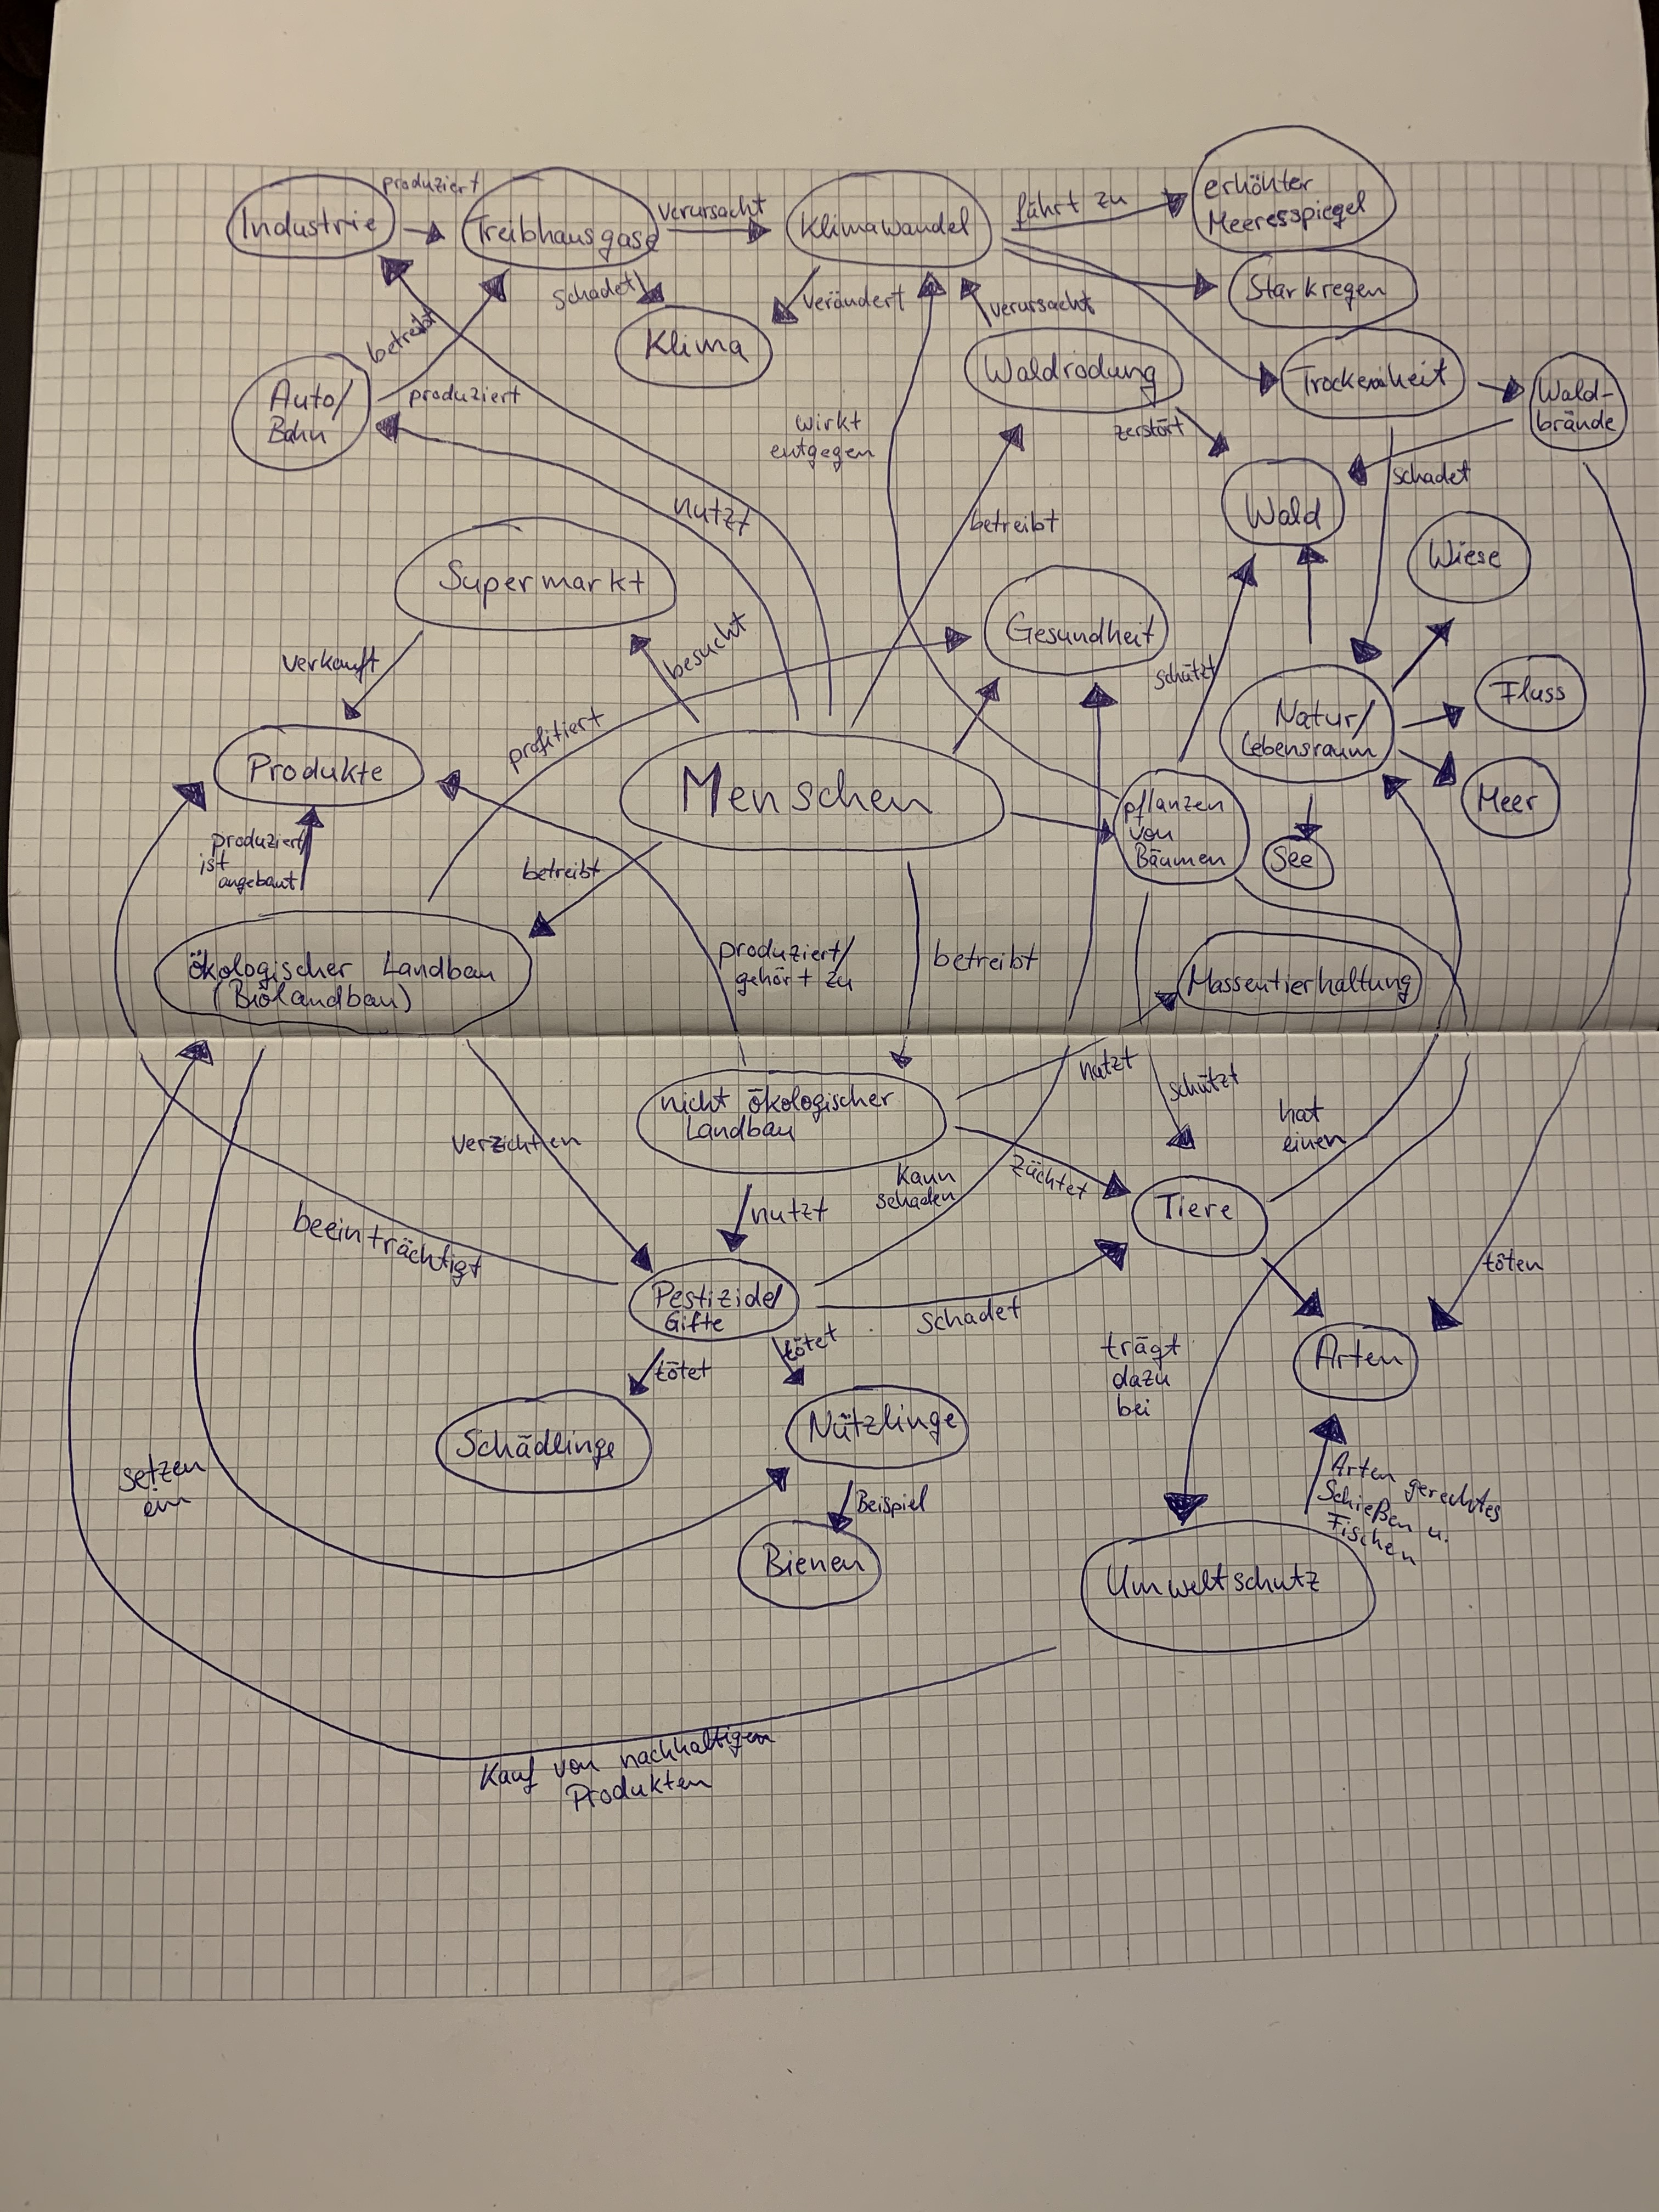 produziert
Industrie
Treibhausgase
verursacht
Klimawandel
führt zu
erhöhter
Meeresspiegel
schadet
verändert
verursacht
Starkregen
betreibt
Klima
Waldrodung
Trockenheit
Wald-
brände
Auto/
Bahn
produziert
wirkt
entgegen
zerstört
schadet
nutzt
betreibt
Wald
Wiese
Supermarkt
besucht
Gesundheit
verkauft
schützt
Fluss
profitiert
Natur/
Lebensraum
Produkte
Menschen
pflanzen
von
Bäumen
Meer
See
produziert
ist
angebaut
betreibt
ökologischer Landbau
(Biolandbau)
produziert/
gehört zu
betreibt
Massentierhaltung
nutzt
schützt
nicht ökologischer
Landbau
verzichten
hat
einen
kann
schaden
züchtet
Tiere
nutzt
beeinträchtigt
Pestizide/
Gifte
schadet
töten
tötet
tötet
trägt
dazu
bei
Arten
Schädlinge
Nützlinge
setzen
ein
Beispiel
Arten gerechtes
Schießen u.
Fischen
Bienen
Umweltschutz
Kauf von nachhaltigen
Produkten